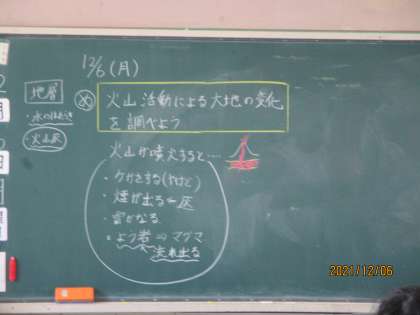 12/6(月)
地層
・水のはたらき
・火山灰
め
火山活動による大地の変化
を調べよう
火山が噴火すると…
・ケガをする(やけど)
・煙が出る＝灰
・雲がなる
・よう岩 ⇒ マグマ
流れ出る
2021/12/06